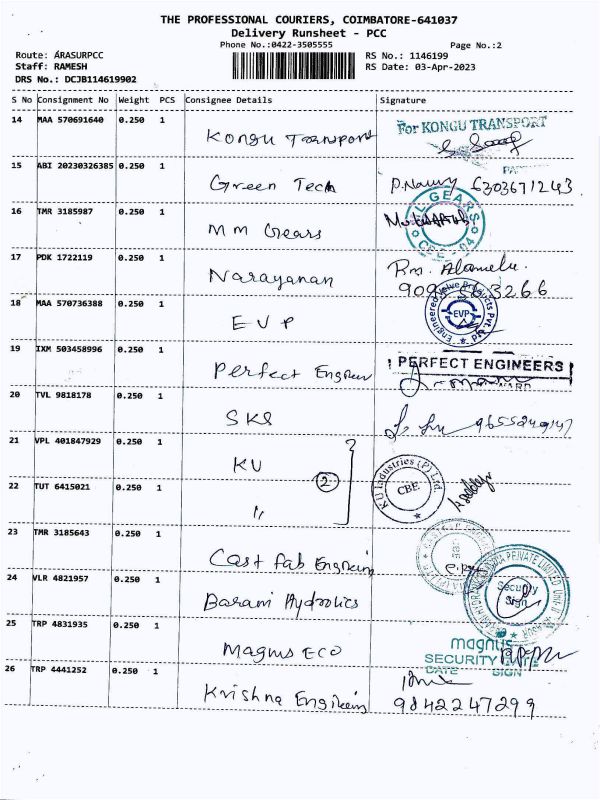 THE PROFESSIONAL COURIERS, COIMBATORE-641037
Delivery Runsheet - PCC
Phone No.:0422-3505555 Page No.:2
Route: ARASURPCC RS No.: 1146199
Staff: RAMESH RS Date: 03-Apr-2023
DRS No.: DCJB114619902
S No Consignment No Weight PCS Consignee Details Signature
14 MAA 570691640 0.250 1 Kongu Transport For KONGU TRANSPORT
15 ABI 20230326385 0.250 1 Green Tech 6303671243
16 TMR 3185987 0.250 1 MM Gears GEARS CBE - 04
17 PDK 1722119 0.250 1 Narayanan Rm. Alamelu
18 MAA 570736388 0.250 1 EVP Engineered Valve Products Pvt. Ltd. EVP
19 IXM 503458996 0.250 1 Perfect Engineer PERFECT ENGINEERS
20 TVL 9818178 0.250 1 SKS
21 VPL 401847929 0.250 1 KU KU Industries (P) Ltd. CBE
22 TUT 6415021 0.250 1 " 2
23 TMR 3185643 0.250 1 Cast Fab Engineing
24 VLR 4821957 0.250 1 Barani Hydrolics PRIVATE LIMITED Security Sign
25 TRP 4831935 0.250 1 Magnus ECO magnus SECURITY DATE SIGN
26 TRP 4441252 0.250 1 Krishna Engineeing 9842247299